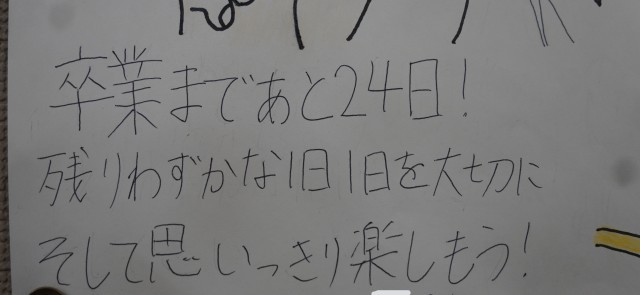 卒業まであと24日!
残りわずかな1日1日を大切に
そして思いっきり楽しもう!